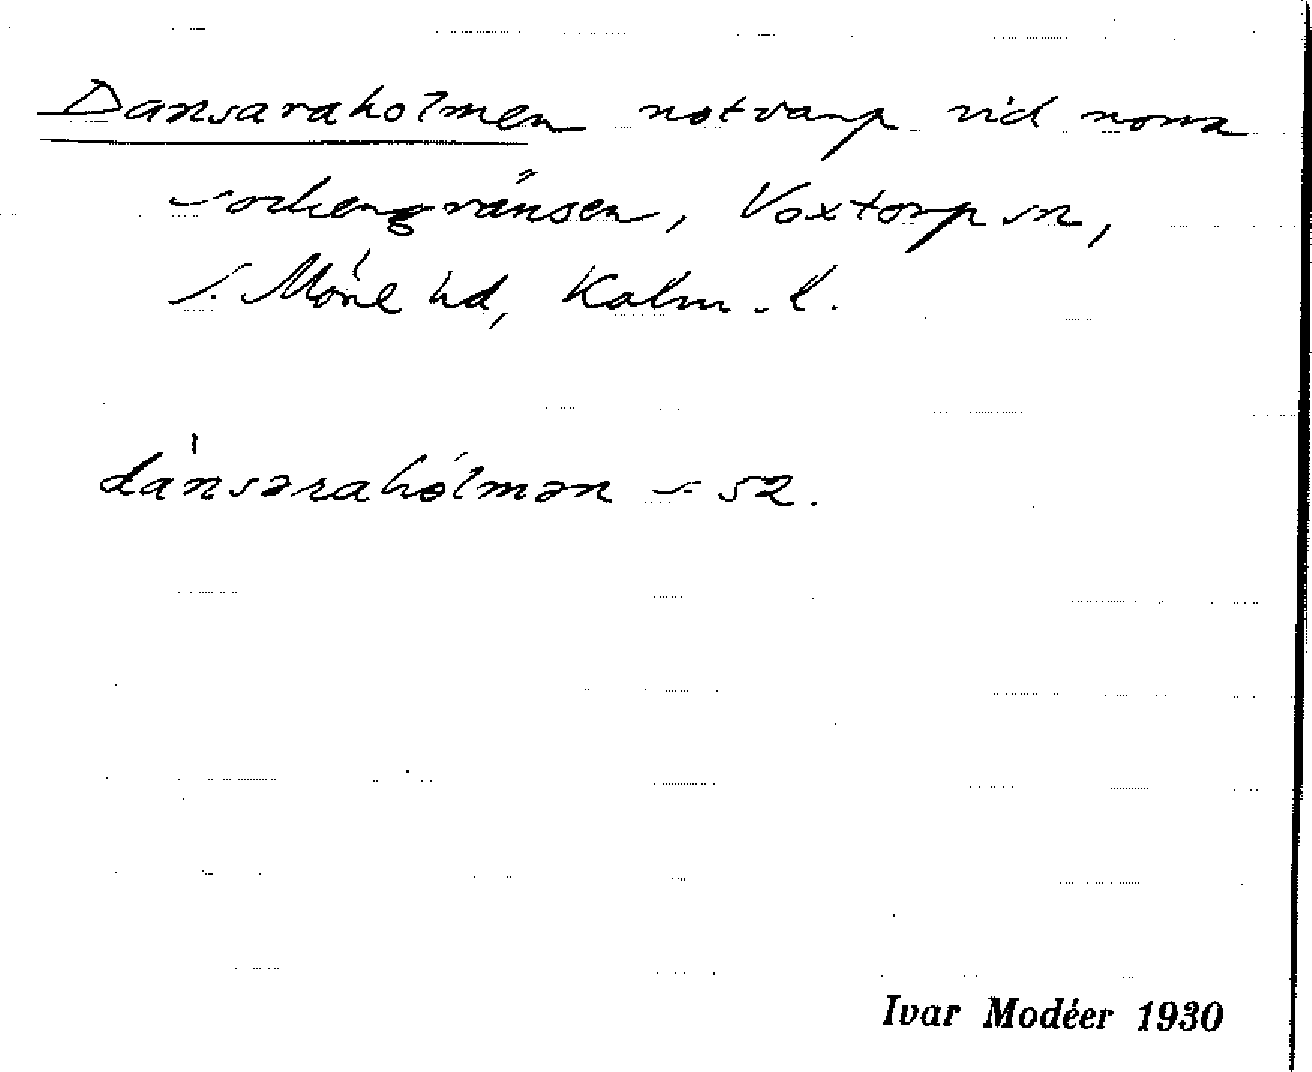 Dansaraholmen notvarp vid norra
sockengränsen, Voxtorp sn,
s. Möre hd, Kalm. l.
dánsərahólmən s. 52.
Ivar Modéer 1930